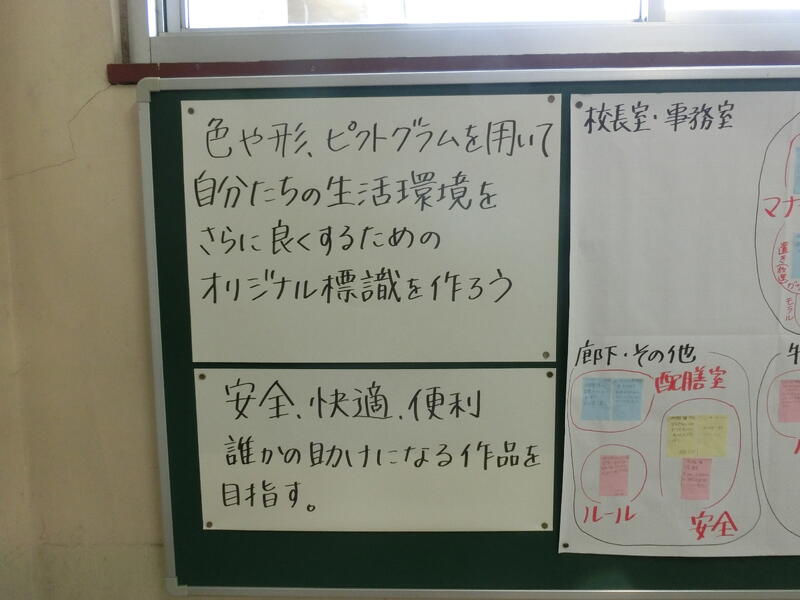 色や形、ピクトグラムを用いて
自分たちの生活環境を
さらに良くするための
オリジナル標識を作ろう
安全、快適、便利
誰かの助けになる作品を
目指す。
校長室・事務室
マナ
置き放題
モラル
廊下・その他
配膳室
ルール
安全